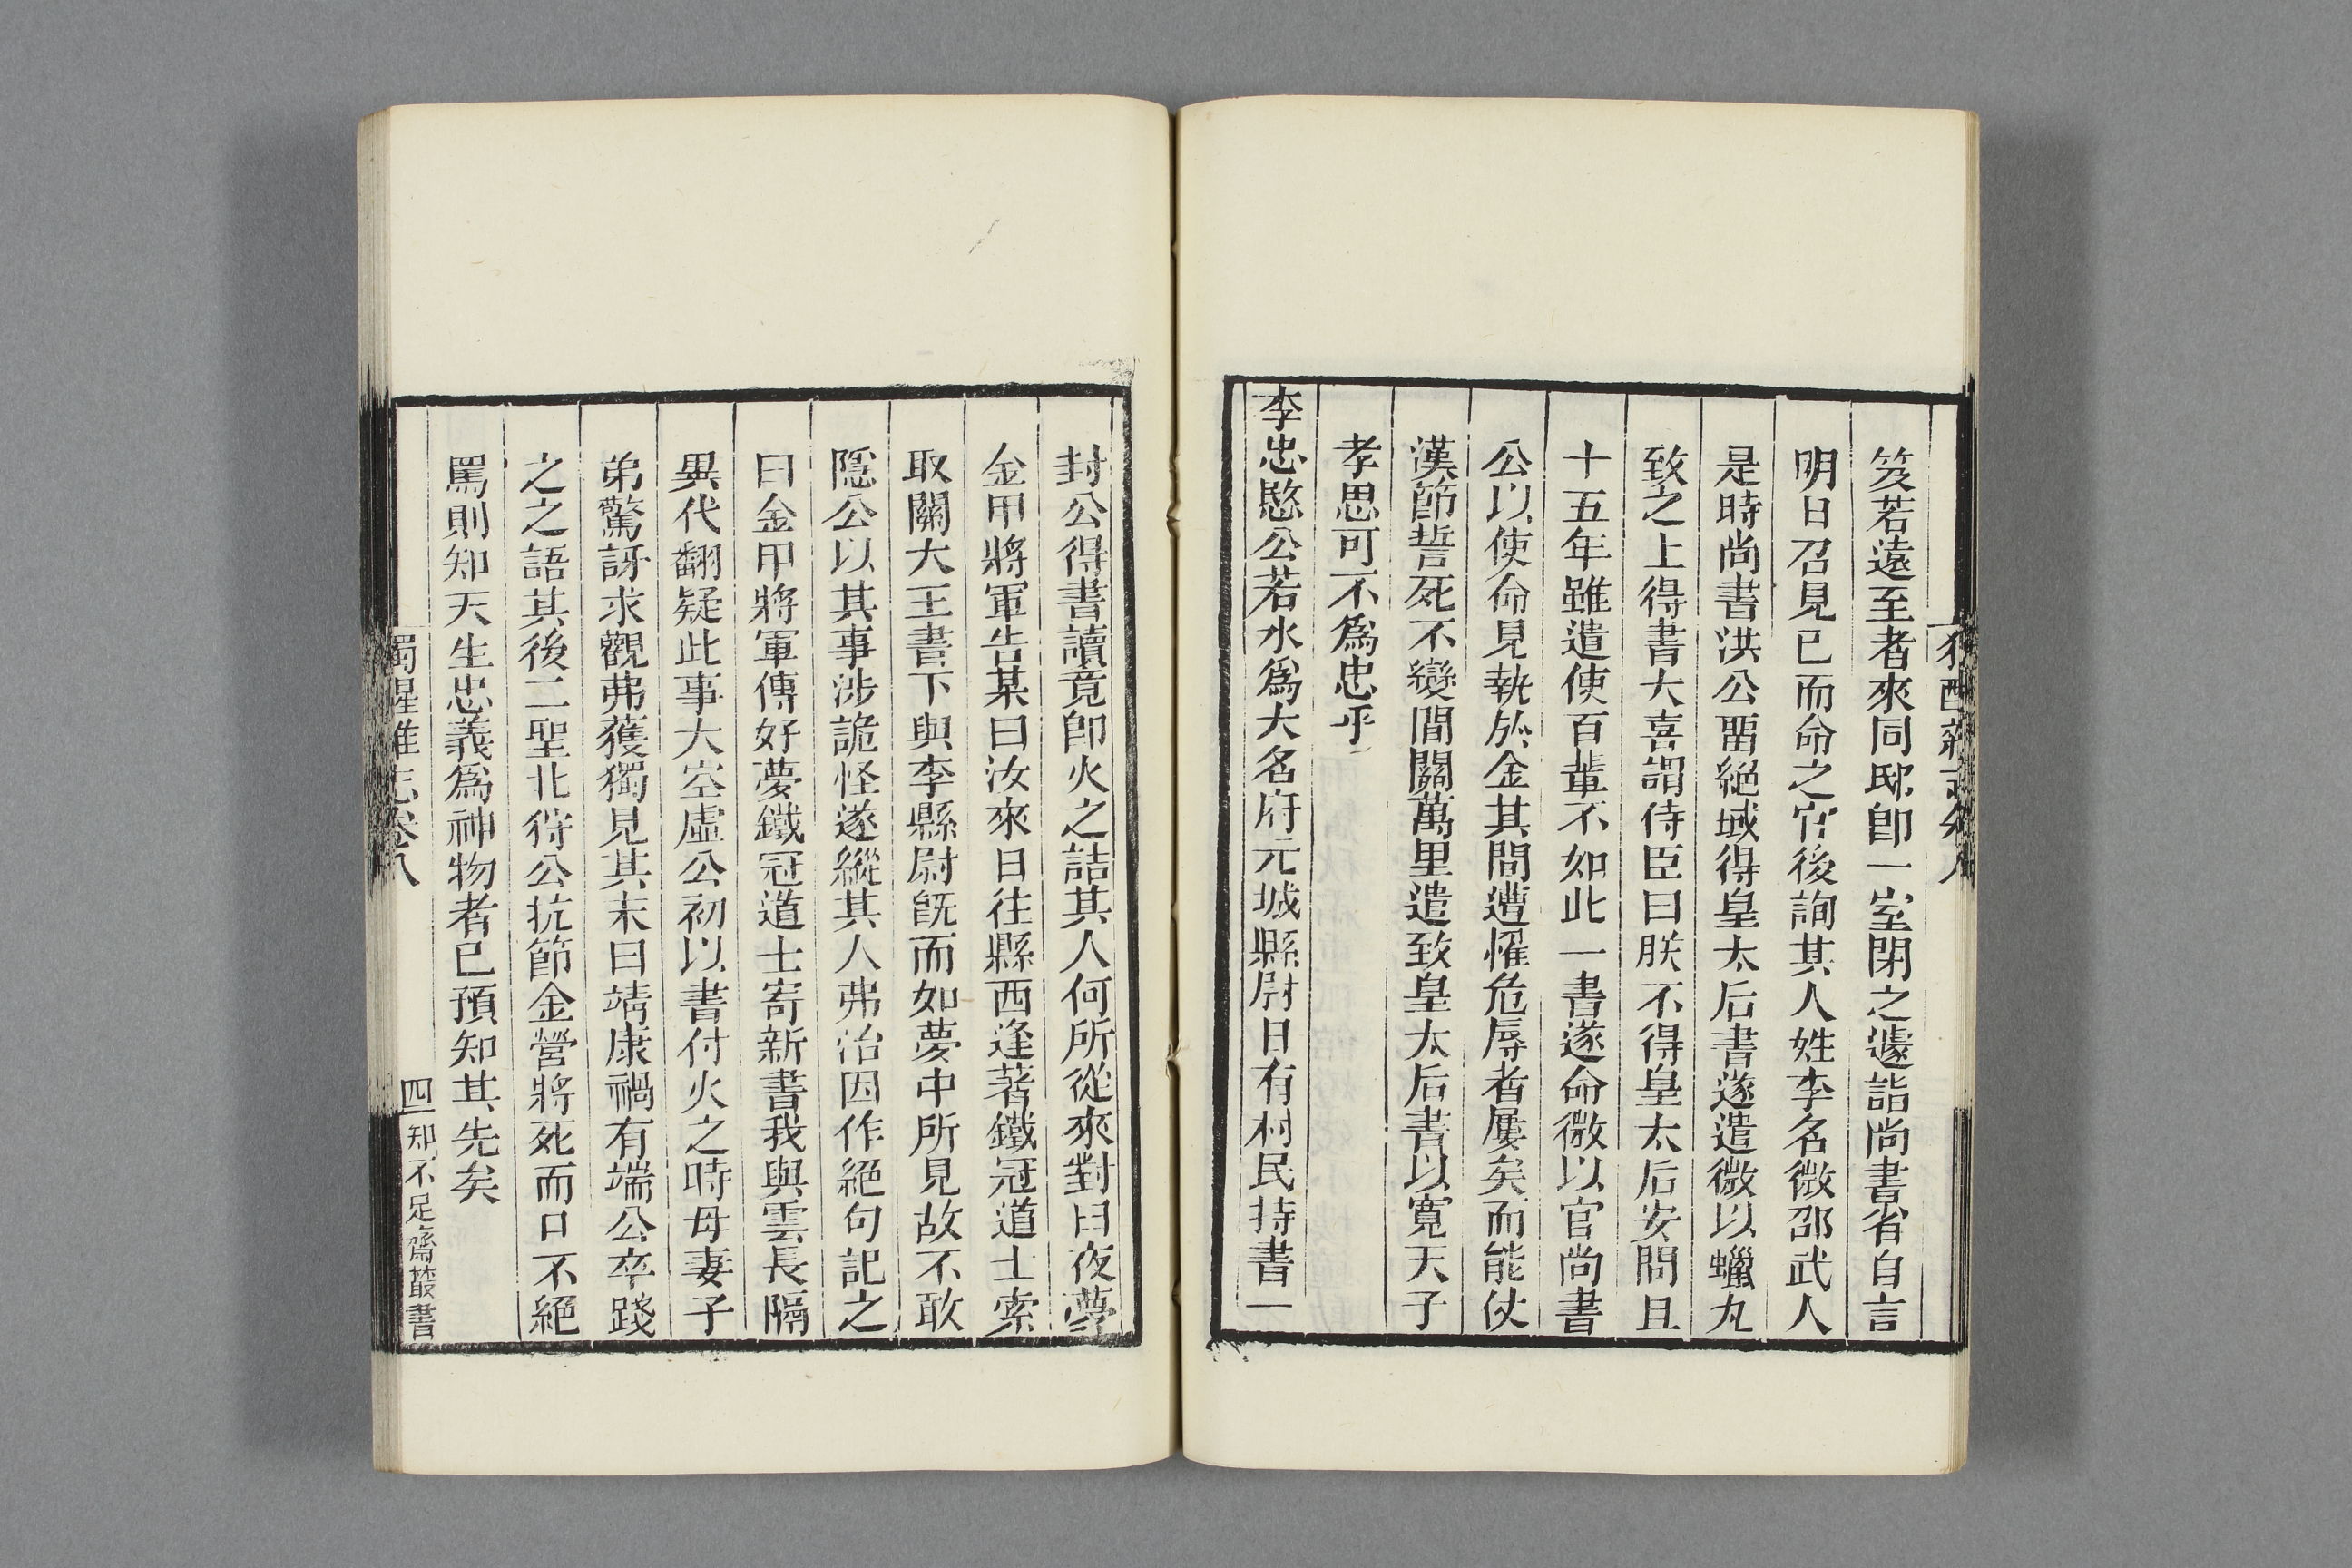 笈若遠至者來同邸卽一室閉之遽詣尚書省自言
明日召見已而命之官後詢其人姓李名微邵武人
是時尚書洪公畱絕域得皇太后書遂遣微以蠟丸
致之上得書大喜謂侍臣曰朕不得皇太后安問且
十五年雖遣使百輩不如此一書遂命微以官尚書
公以使命見執於金其間遭懼危辱者屢矣而能仗
漢節誓死不變間關萬里遣致皇太后書以寬天子
孝思可不爲忠乎
李忠愍公若水爲大名府元城縣尉日有村民持書一
封公得書讀竟卽火之詰其人何所從來對曰夜夢
金甲將軍告某曰汝來日往縣西逢著鐵冠道士索
取關大王書下與李縣尉旣而如夢中所見故不敢
隱公以其事涉詭怪遂縱其人弗治因作絕句記之
曰金甲將軍傳好夢鐵冠道士寄新書我與雲長隔
異代翻疑此事大空虛公初以書付火之時母妻子
弟驚訝求觀弗獲獨見其末曰靖康禍有端公卒踐
之之語其後二聖北狩公抗節金營將死而口不絕
罵則知天生忠義爲神物者已預知其先矣
獨醒雜志卷八
四
知不足齋叢書